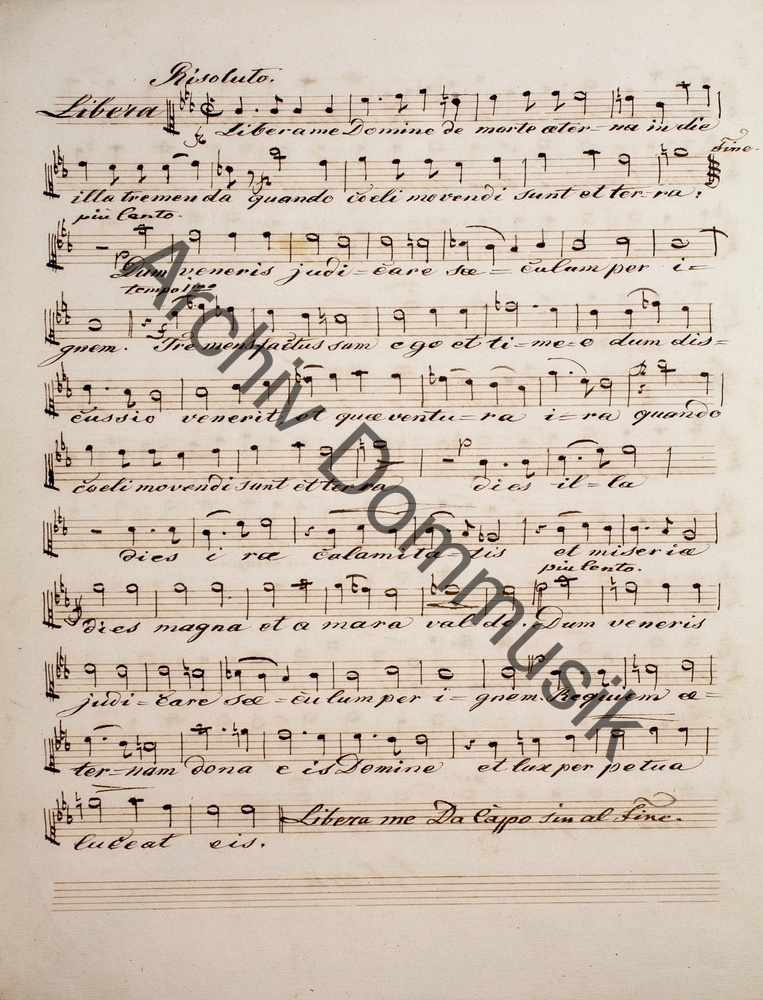 Risoluto.
Libera
Libera me Domine de morte æter=na in die
Fine.
illa tremenda quando cœli movendi sunt et ter=ra;
piu lento.
Dum veneris judi=care sæ=culum per i=
tempo 1mo
gnem. Tremens factus sum ego et ti=me=o dum dis=
cussio venerit, et quæ ventu=ra i=ra quando
cœli movendi sunt et ter ra dies il=la
dies i ræ calamita=tis et miseriæ
piu lento.
dies magna et a mara val de. Dum veneris
judi=care sæ=culum per i=gnem. Requiem æ=
ter=nam dona e is Domine et lux per petua
luceat eis.
Libera me Da Capo sin al Fine.
Archiv Dommusik